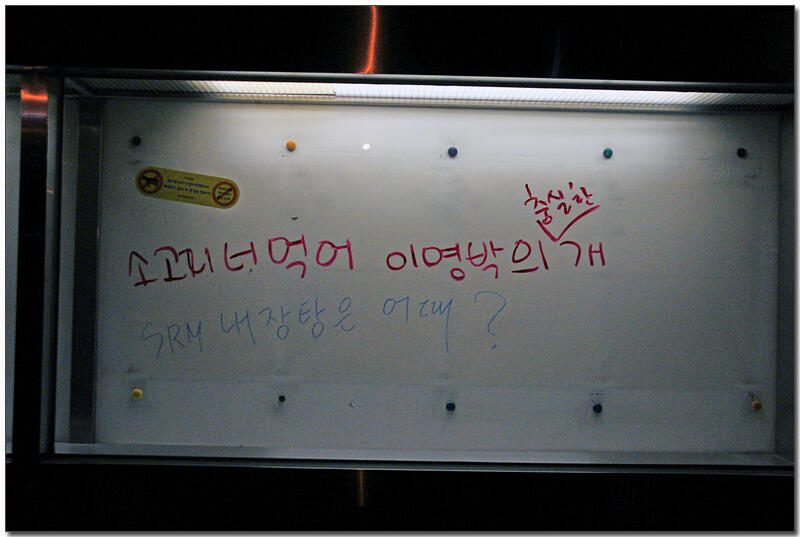 충실한
소고기 너 먹어 이명박의 개
SRM 내장탕은 어때 ?